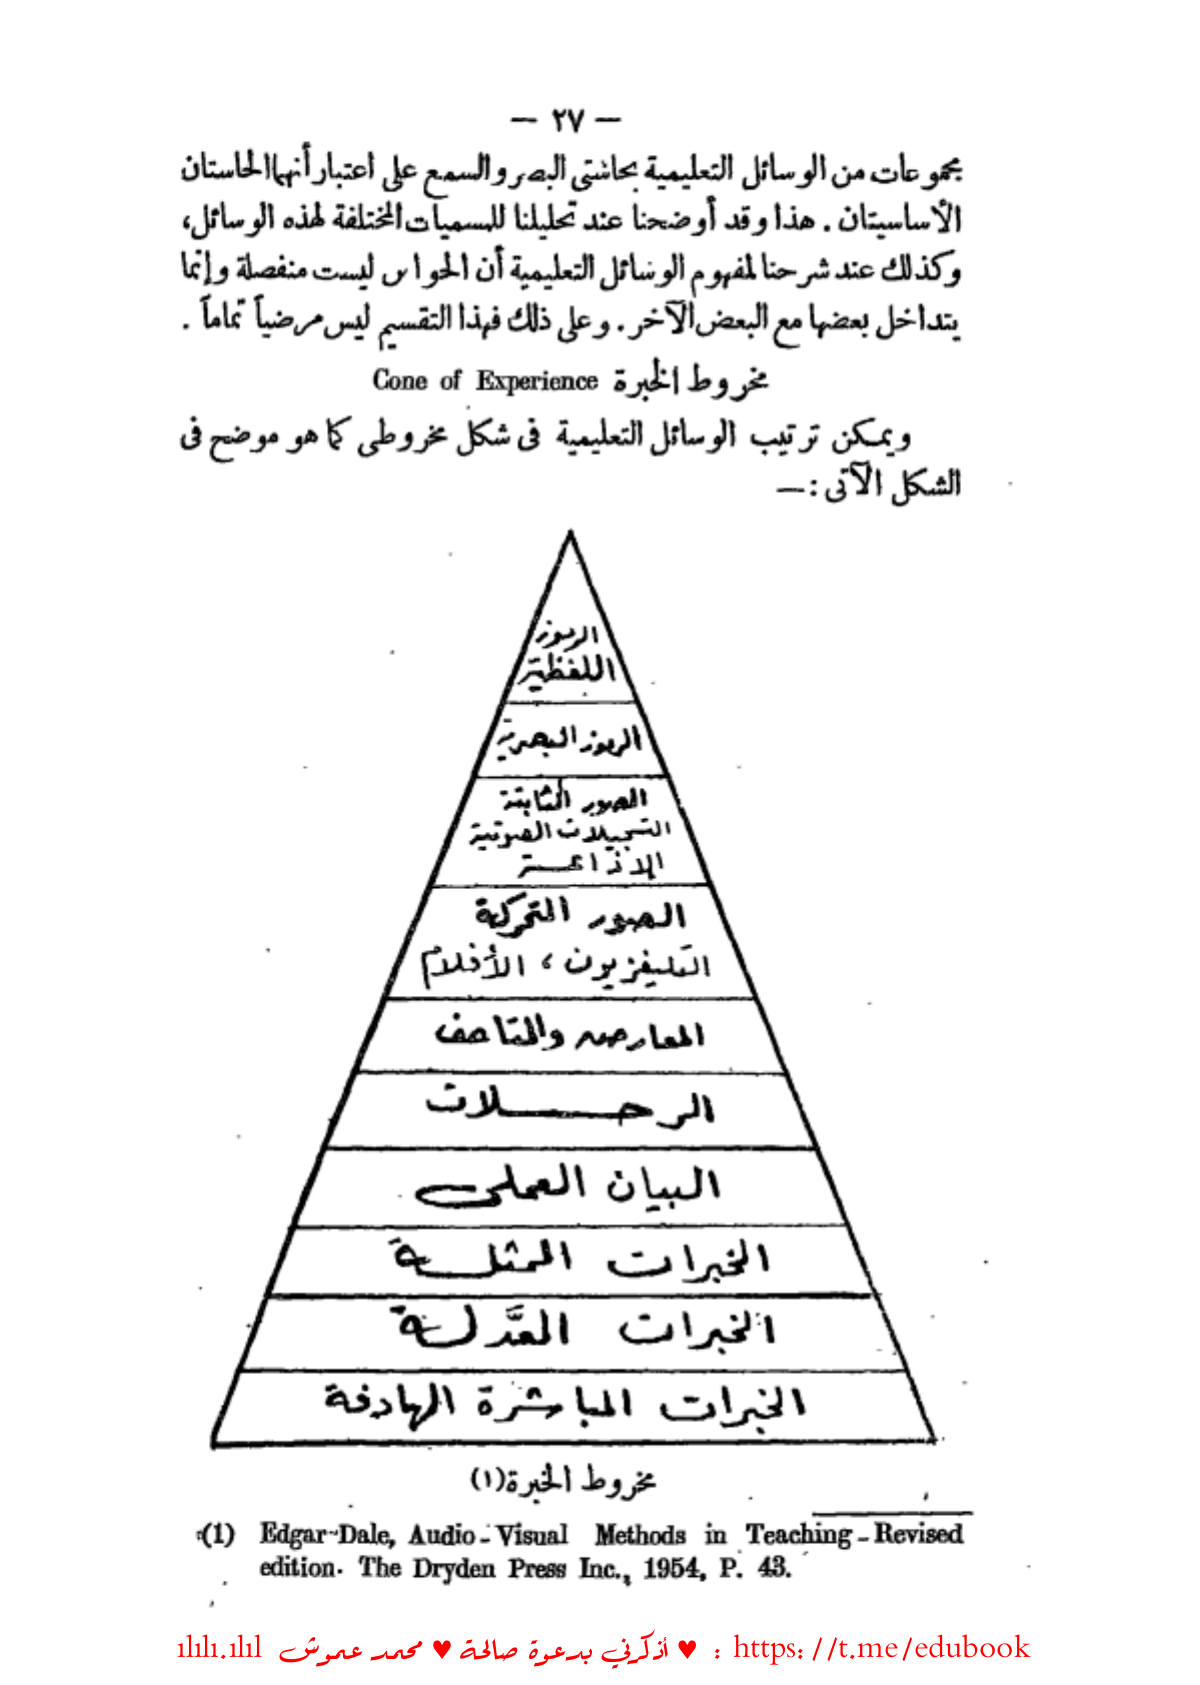 — ٢٧ —
مجموعات من الوسائل التعليمية بحاستى البصر والسمع على اعتبار أنهما الحاستان
الأساسيتان . هذا وقد أوضحنا عند تحليلنا للمسميات المختلفة لهذه الوسائل،
وكذلك عند شرحنا لمفهوم الوسائل التعليمية أن الحواس ليست منفصلة وإنما
يتداخل بعضها مع البعض الآخر . وعلى ذلك فهذا التقسيم ليس مرضياً تماماً .
مخروط الخبرة Cone of Experience
ويمكن ترتيب الوسائل التعليمية فى شكل مخروطى كما هو موضح فى
الشكل الآتى : —
الرموز
اللفظية
الرموز البصرية
الصور الثابتة
التسجيلات الصوتية
الإذاعة
الصور المتحركة
التليفزيون ، الأفلام
المعارض والمتاحف
الرحلات
البيان العملى
الخبرات الممثلة
الخبرات المعدَّلة
الخبرات المباشرة الهادفة
مخروط الخبرة(١)
(1) Edgar-Dale, Audio-Visual Methods in Teaching-Revised
edition. The Dryden Press Inc., 1954, P. 43.
ılılı.ılıl محمد عموش ♥ أذكرني بدعوة صالحة ♥ : https://t.me/edubook